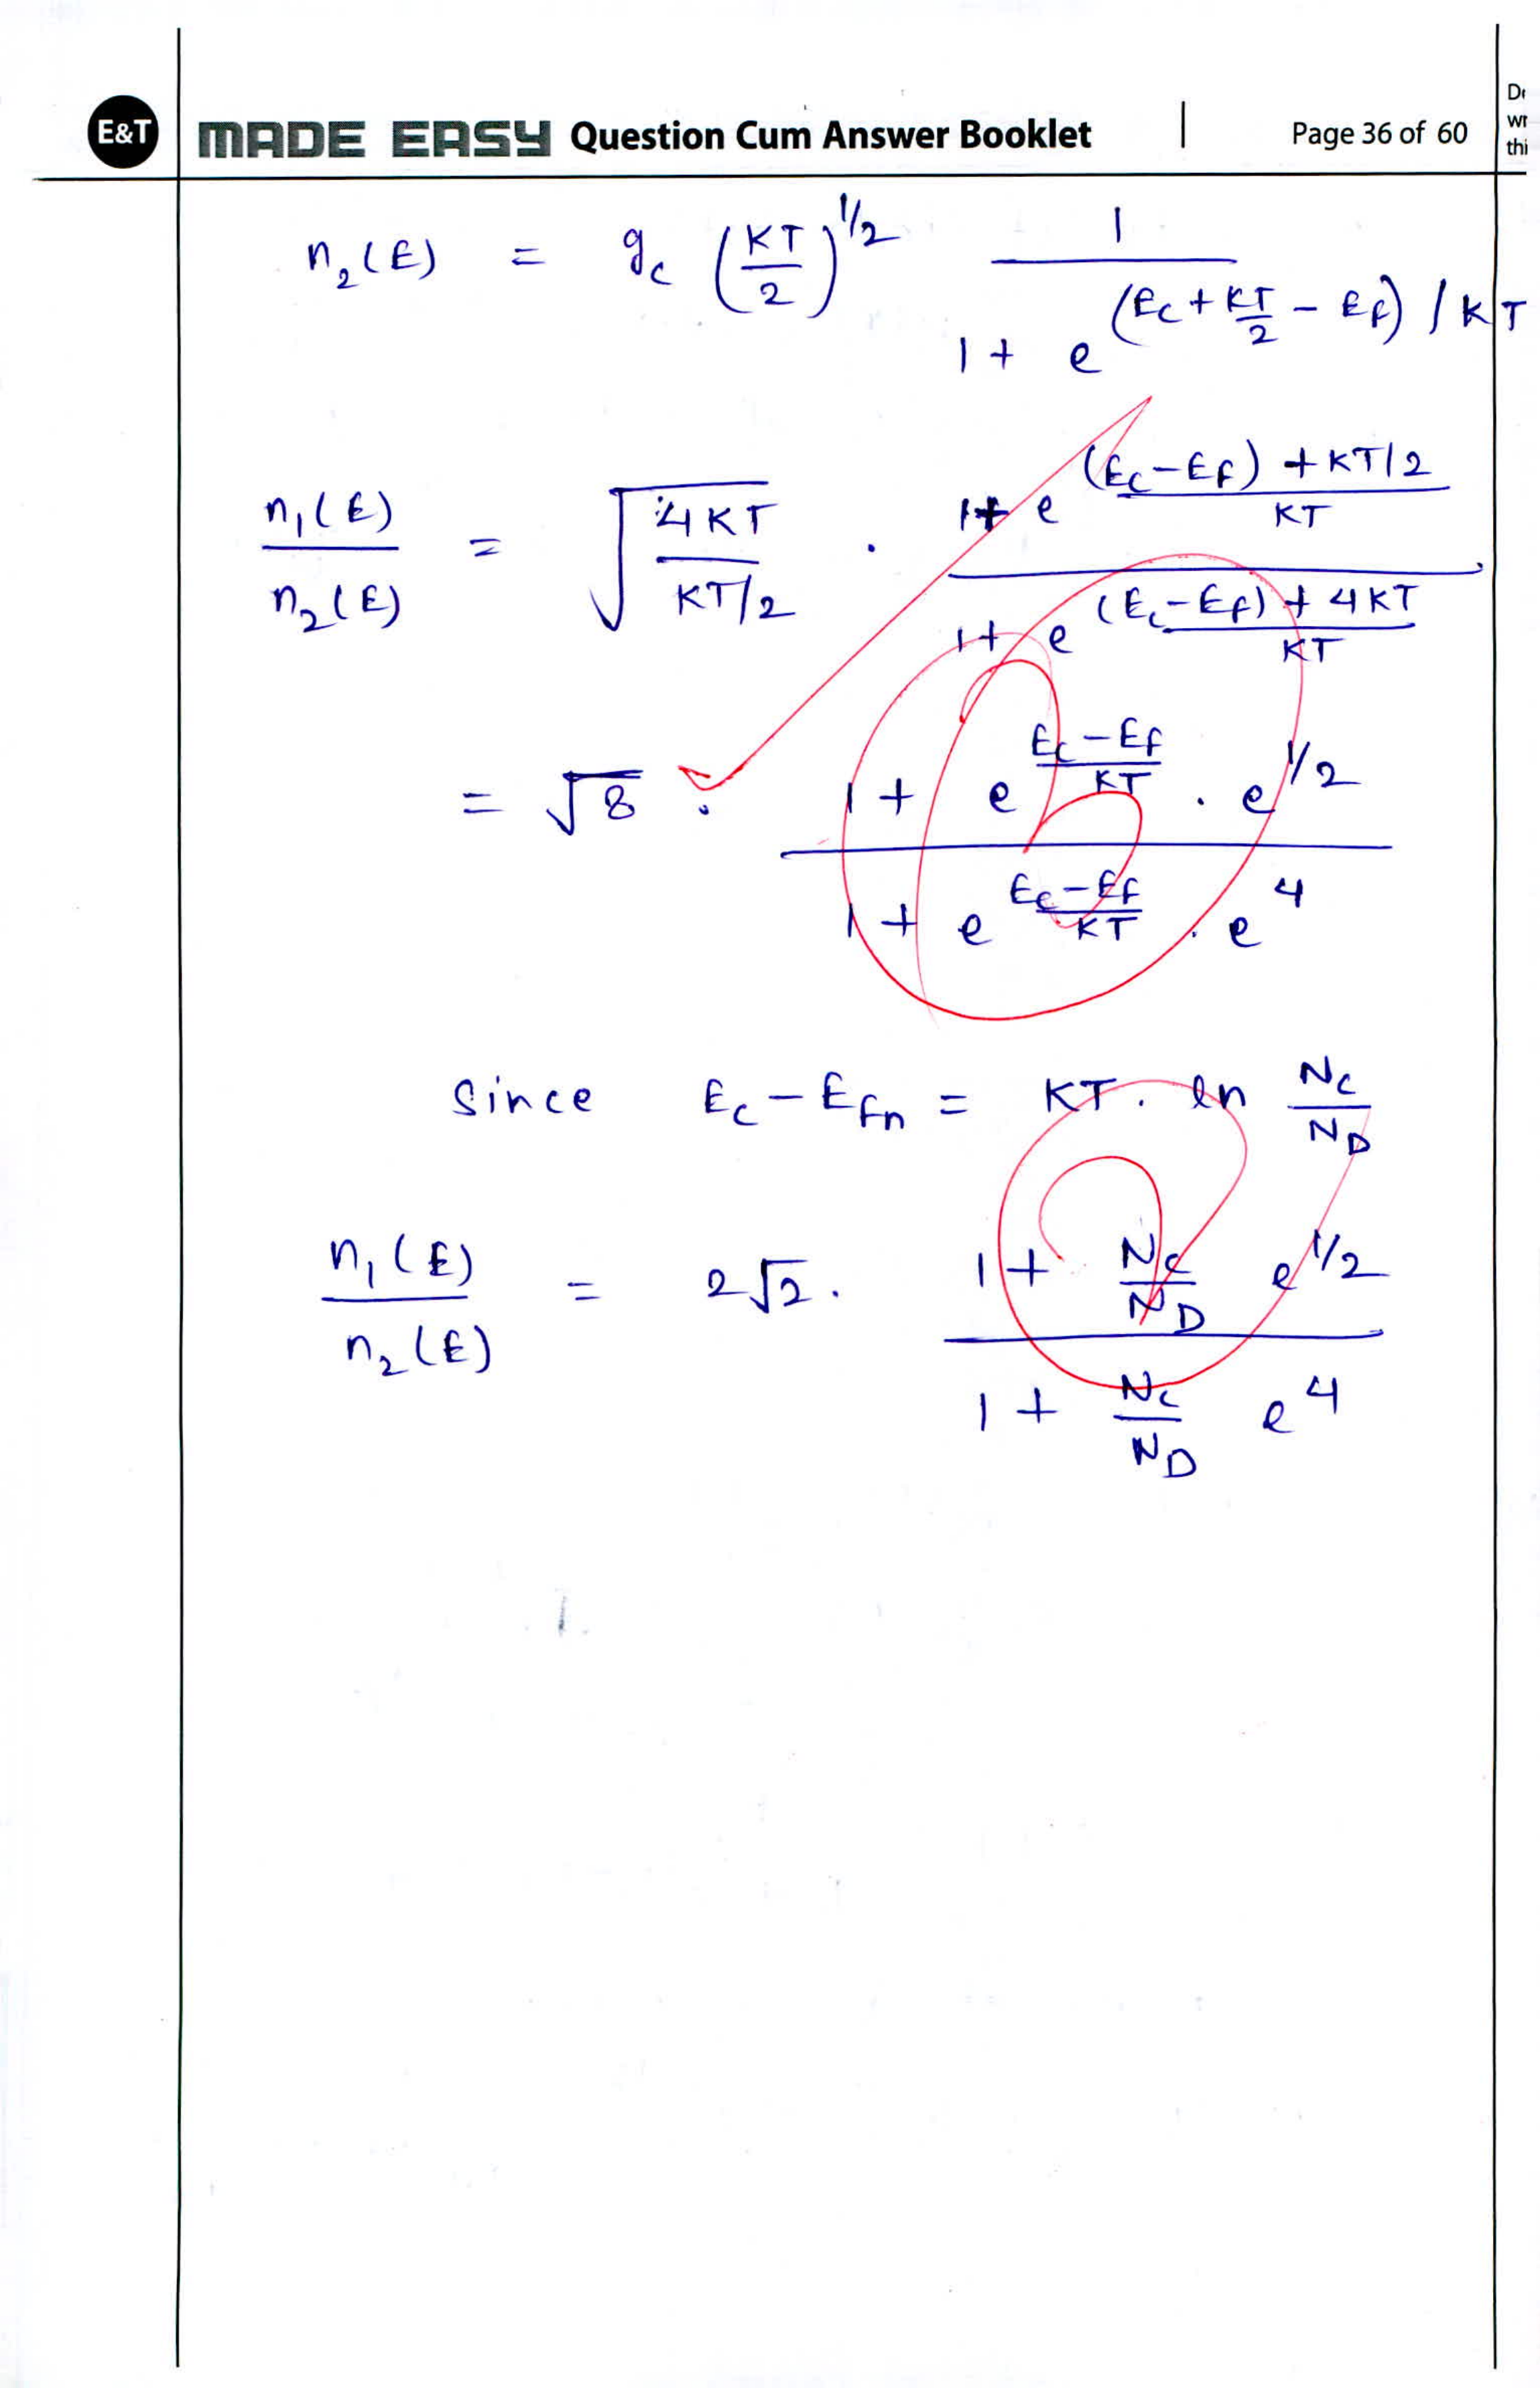 E&T MADE EASY Question Cum Answer Booklet | Page 36 of 60
n₂(E) = g_c (KT/2)^1/2 1/(1 + e^(E_c + KT/2 - E_f)/KT)
n₁(E)/n₂(E) = √(4KT/(KT/2)) . (1 + e^((E_c - E_f) + KT/2)/KT)/(1 + e^((E_c - E_f) + 4KT)/KT)
= √8 . (1 + e^((E_c - E_f)/KT) . e^1/2)/(1 + e^((E_c - E_f)/KT) . e^4)
Since E_c - E_fn = KT . ln N_c/N_D
n₁(E)/n₂(E) = 2√2 . (1 + N_c/N_D e^1/2)/(1 + N_c/N_D e^4)